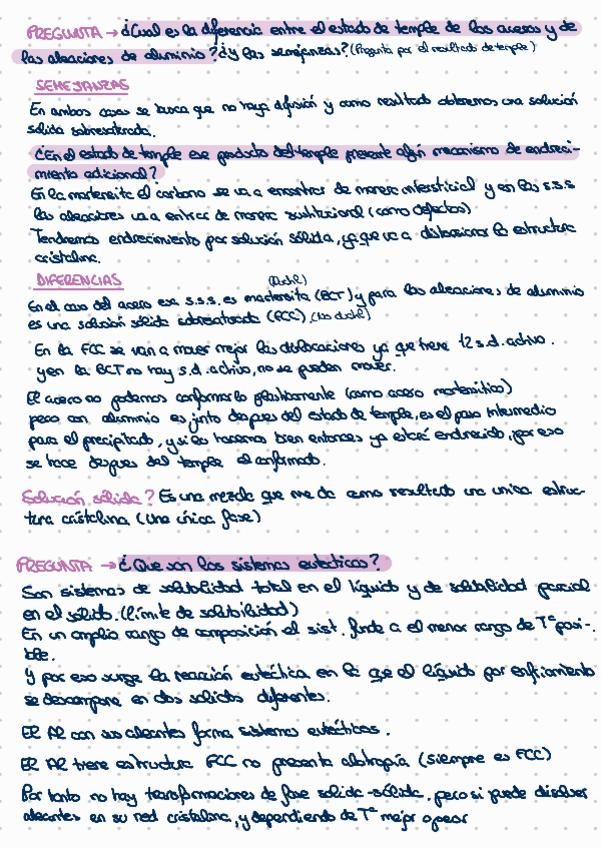 PREGUNTA → ¿Cual es la diferencia entre el estado de temple de los aceros y de
las aleaciones de aluminio? ¿Y las semejanzas? (Pregunta por el resultado de temple)
SEMEJANZAS
En ambos casos se busca que no haya difusión y como resultado obtenemos una solución
sólida sobresaturada.
¿En el estado de temple ese producto del temple presente algún mecanismo de endreci-
miento adicional?
En la martensita el carbono se va a encontrar de manera intersticial y en las s.s.s
las aleaciones va a entrar de manera sustitucional (como defectos)
Tendremos endrecimiento por solución sólida, ya que va a distorsionar la estructura
cristalina.
DIFERENCIAS
(Dúctil)
En el caso del acero esa s.s.s. es martensita (BCT) y para las aleaciones de aluminio
es una solución sólida sobresaturada (FCC)
En la FCC se van a mover mejor las dislocaciones ya que tiene 12 s.d. activo.
y en la BCT no hay s.d. activo, no se pueden mover.
El acero no podemos conformarlo plásticamente (como acero martensítico)
pero con aluminio es justo despues del estado de temple, es el paso intermedio
para el precipitado, y si lo hacemos bien entonces ya estará endrecido, por eso
se hace despues del temple el conformado.
Solución sólida? Es una mezcla que me da como resultado una unica estruc-
tura cristalina (Una única fase)
PREGUNTA → ¿Que son los sistemas eutecticos?
Son sistemas de solubilidad total en el líquido y de solubilidad parcial
en el sólido. (Límite de solubilidad)
En un amplio rango de composición el sist. funde a el menor rango de Tª posi-
ble.
Y por eso surge la reacción eutéctica en la que el líquido por enfriamiento
se descompone en dos solidos diferentes.
El Al con sus aleantes forma sistemas eutécticos.
El Al tiene estructura FCC no presenta alotropía (siempre es FCC)
Por tanto no hay transformaciones de fase solida-sólida, pero si puede disolver
aleantes en su red cristalina, y dependiendo de Tª mejor o peor